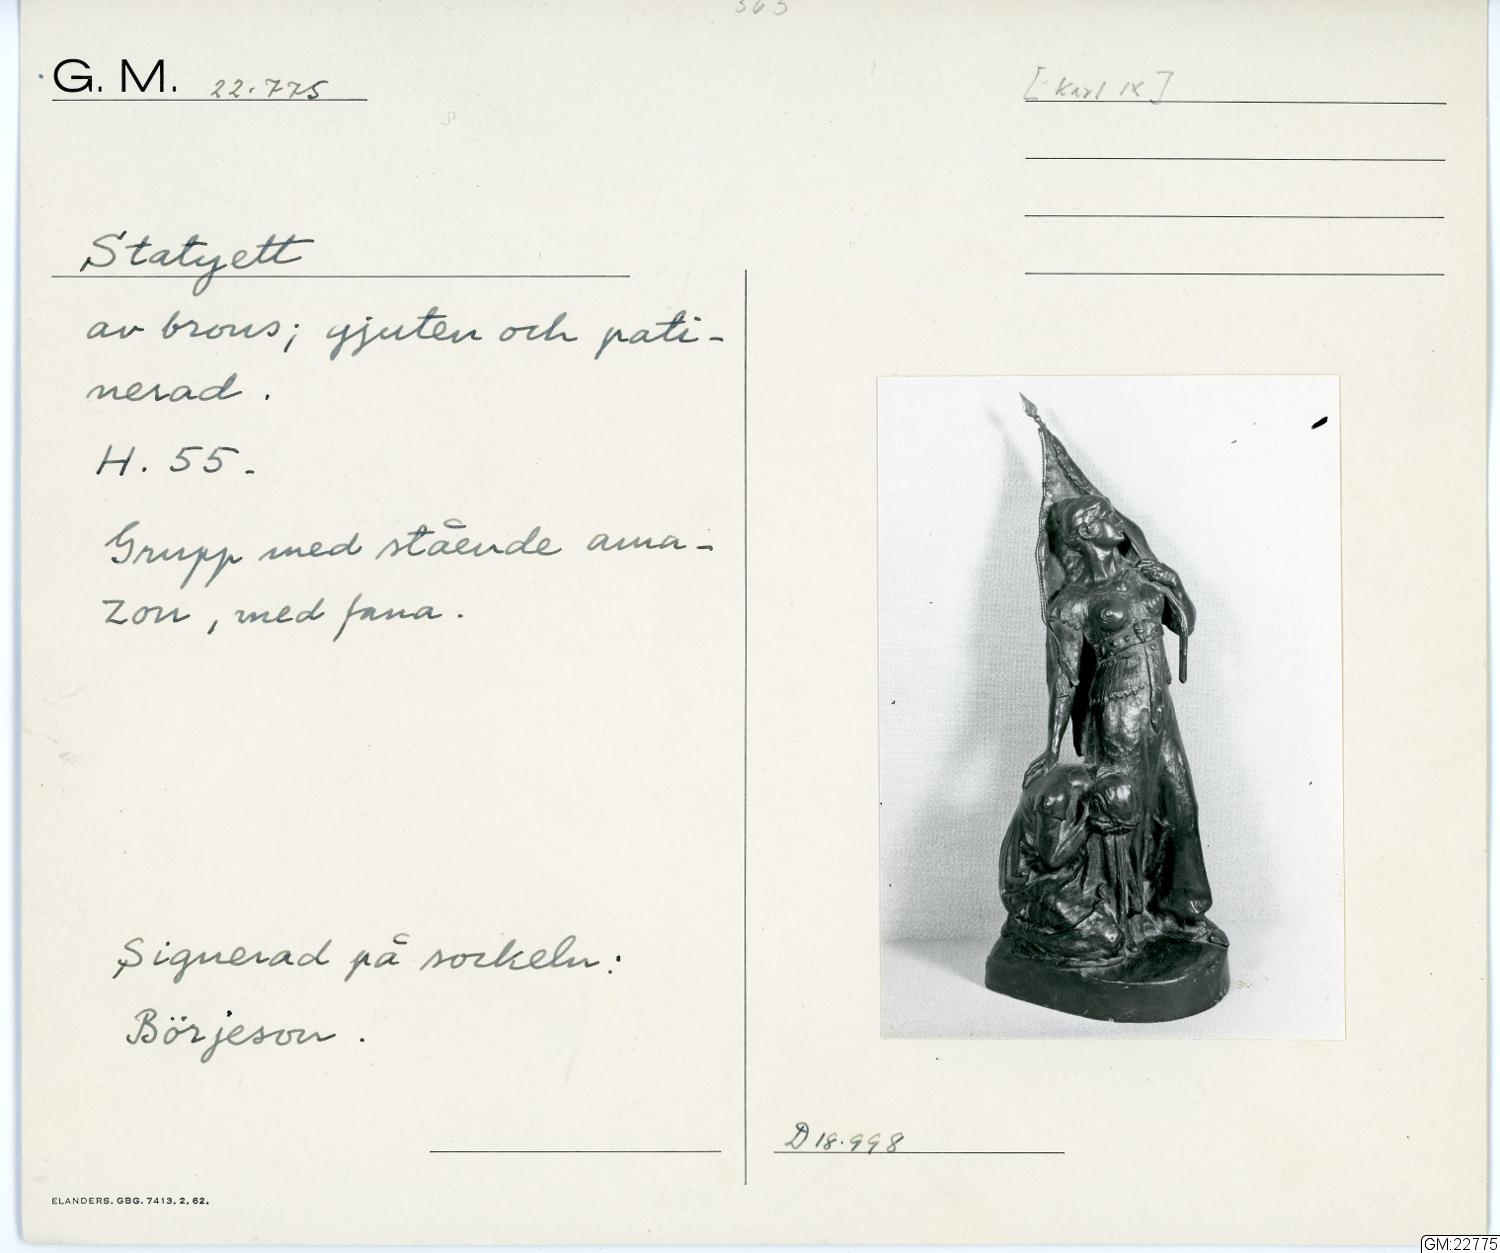 363
G. M. 22.775
[Karl IX]
Statyett
av brons; gjuten och pati-
nerad.
H. 55.
Grupp med stående ama-
zon, med fana.
Signerad på sockeln:
Börjeson.
D 18.998
ELANDERS. GBG. 7413. 2. 62.
GM:22775